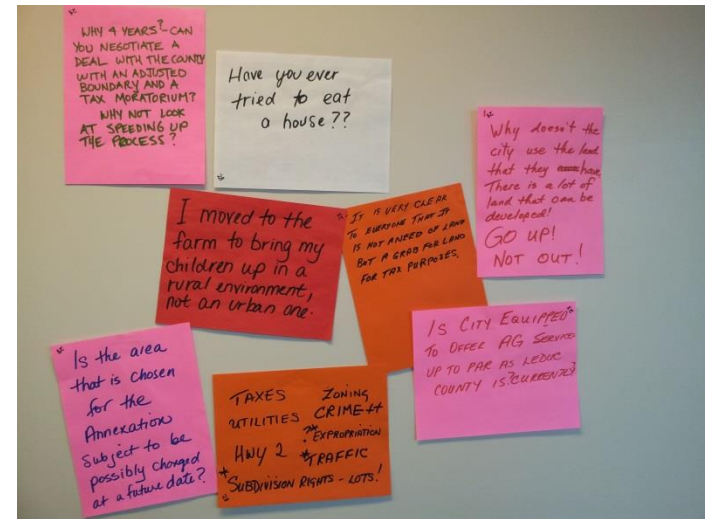 WHY 4 YEARS? - CAN
YOU NEGOTIATE A
DEAL WITH THE COUNTY
WITH AN ADJUSTED
BOUNDARY AND A
TAX MORATORIUM?
WHY NOT LOOK
AT SPEEDING UP
THE PROCESS?
Have you ever
tried to eat
a house??
Why doesn't the
city use the land
that they have.
There is a lot of
land that can be
developed!
GO UP!
NOT OUT!
I moved to the
farm to bring my
children up in a
rural environment,
not an urban one.
IT IS VERY CLEAR
TO EVERYONE THAT IT
IS NOT A NEED OF LAND
BUT A GRAB FOR LAND
FOR TAX PURPOSES.
IS CITY EQUIPPED
TO OFFER AG SERVICE
UP TO PAR AS LEDUC
COUNTY IS CURRENTLY?
Is the area
that is chosen
for the
Annexation
subject to be
possibly changed
at a future date?
TAXES ZONING
UTILITIES CRIME ++
?* EXPROPRIATION
HWY 2 * TRAFFIC
* SUBDIVISION RIGHTS - LOTS!